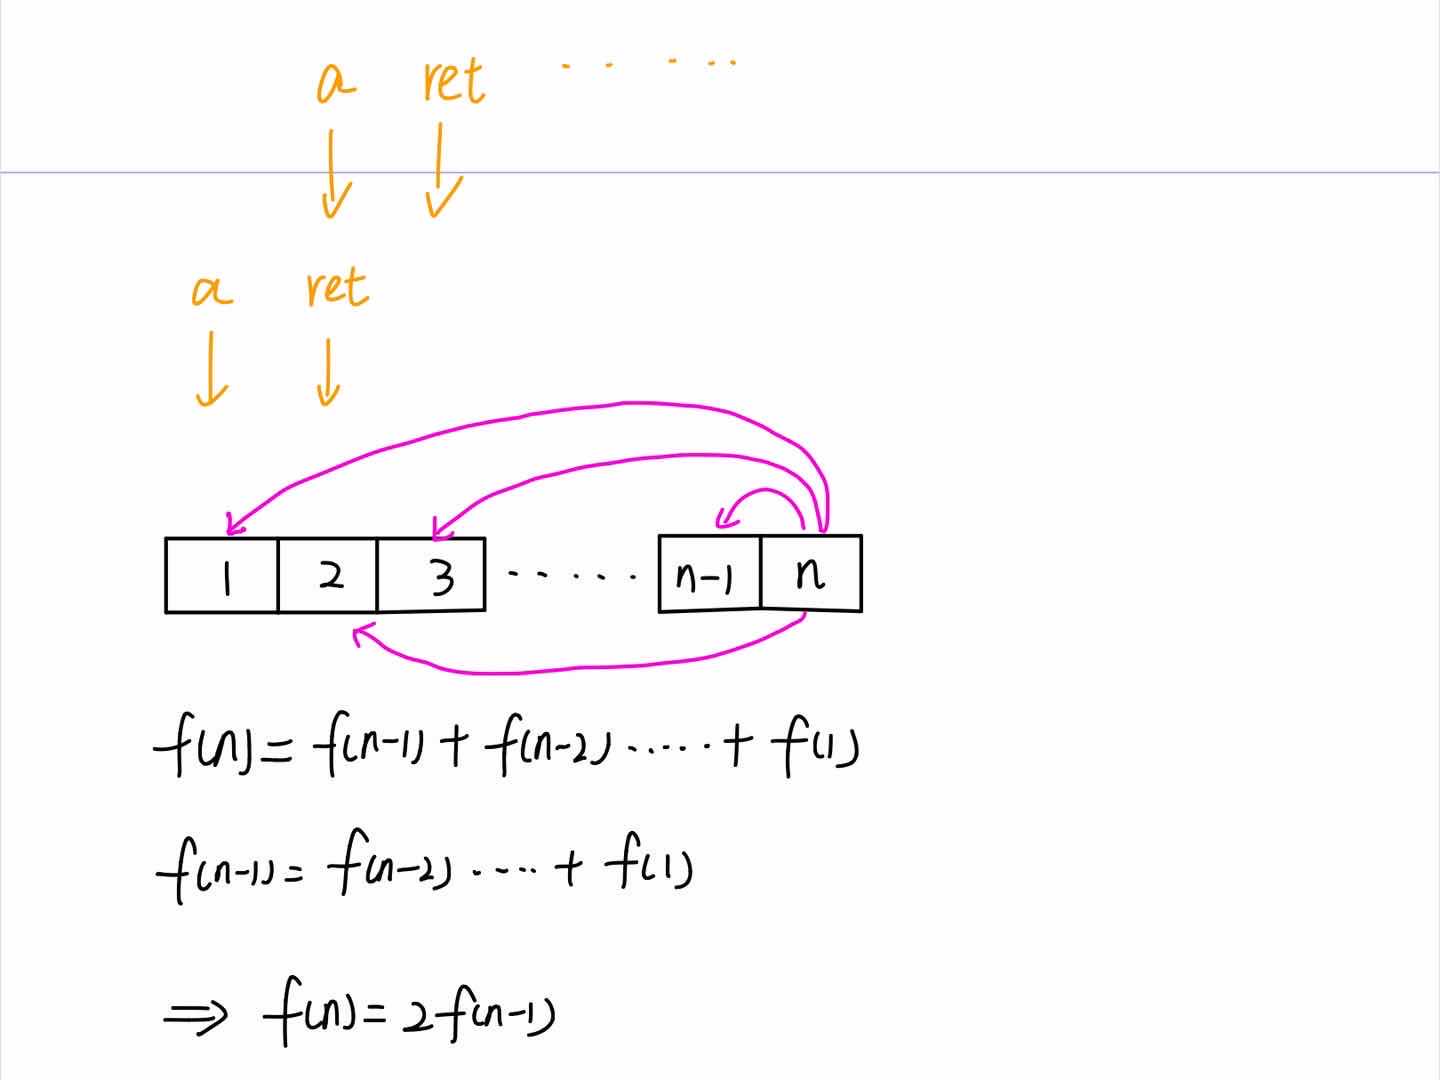 a ret .....
a ret
1 2 3 ..... n-1 n
f(n) = f(n-1) + f(n-2) ..... + f(1)
f(n-1) = f(n-2) ..... + f(1)
⇒ f(n) = 2f(n-1)